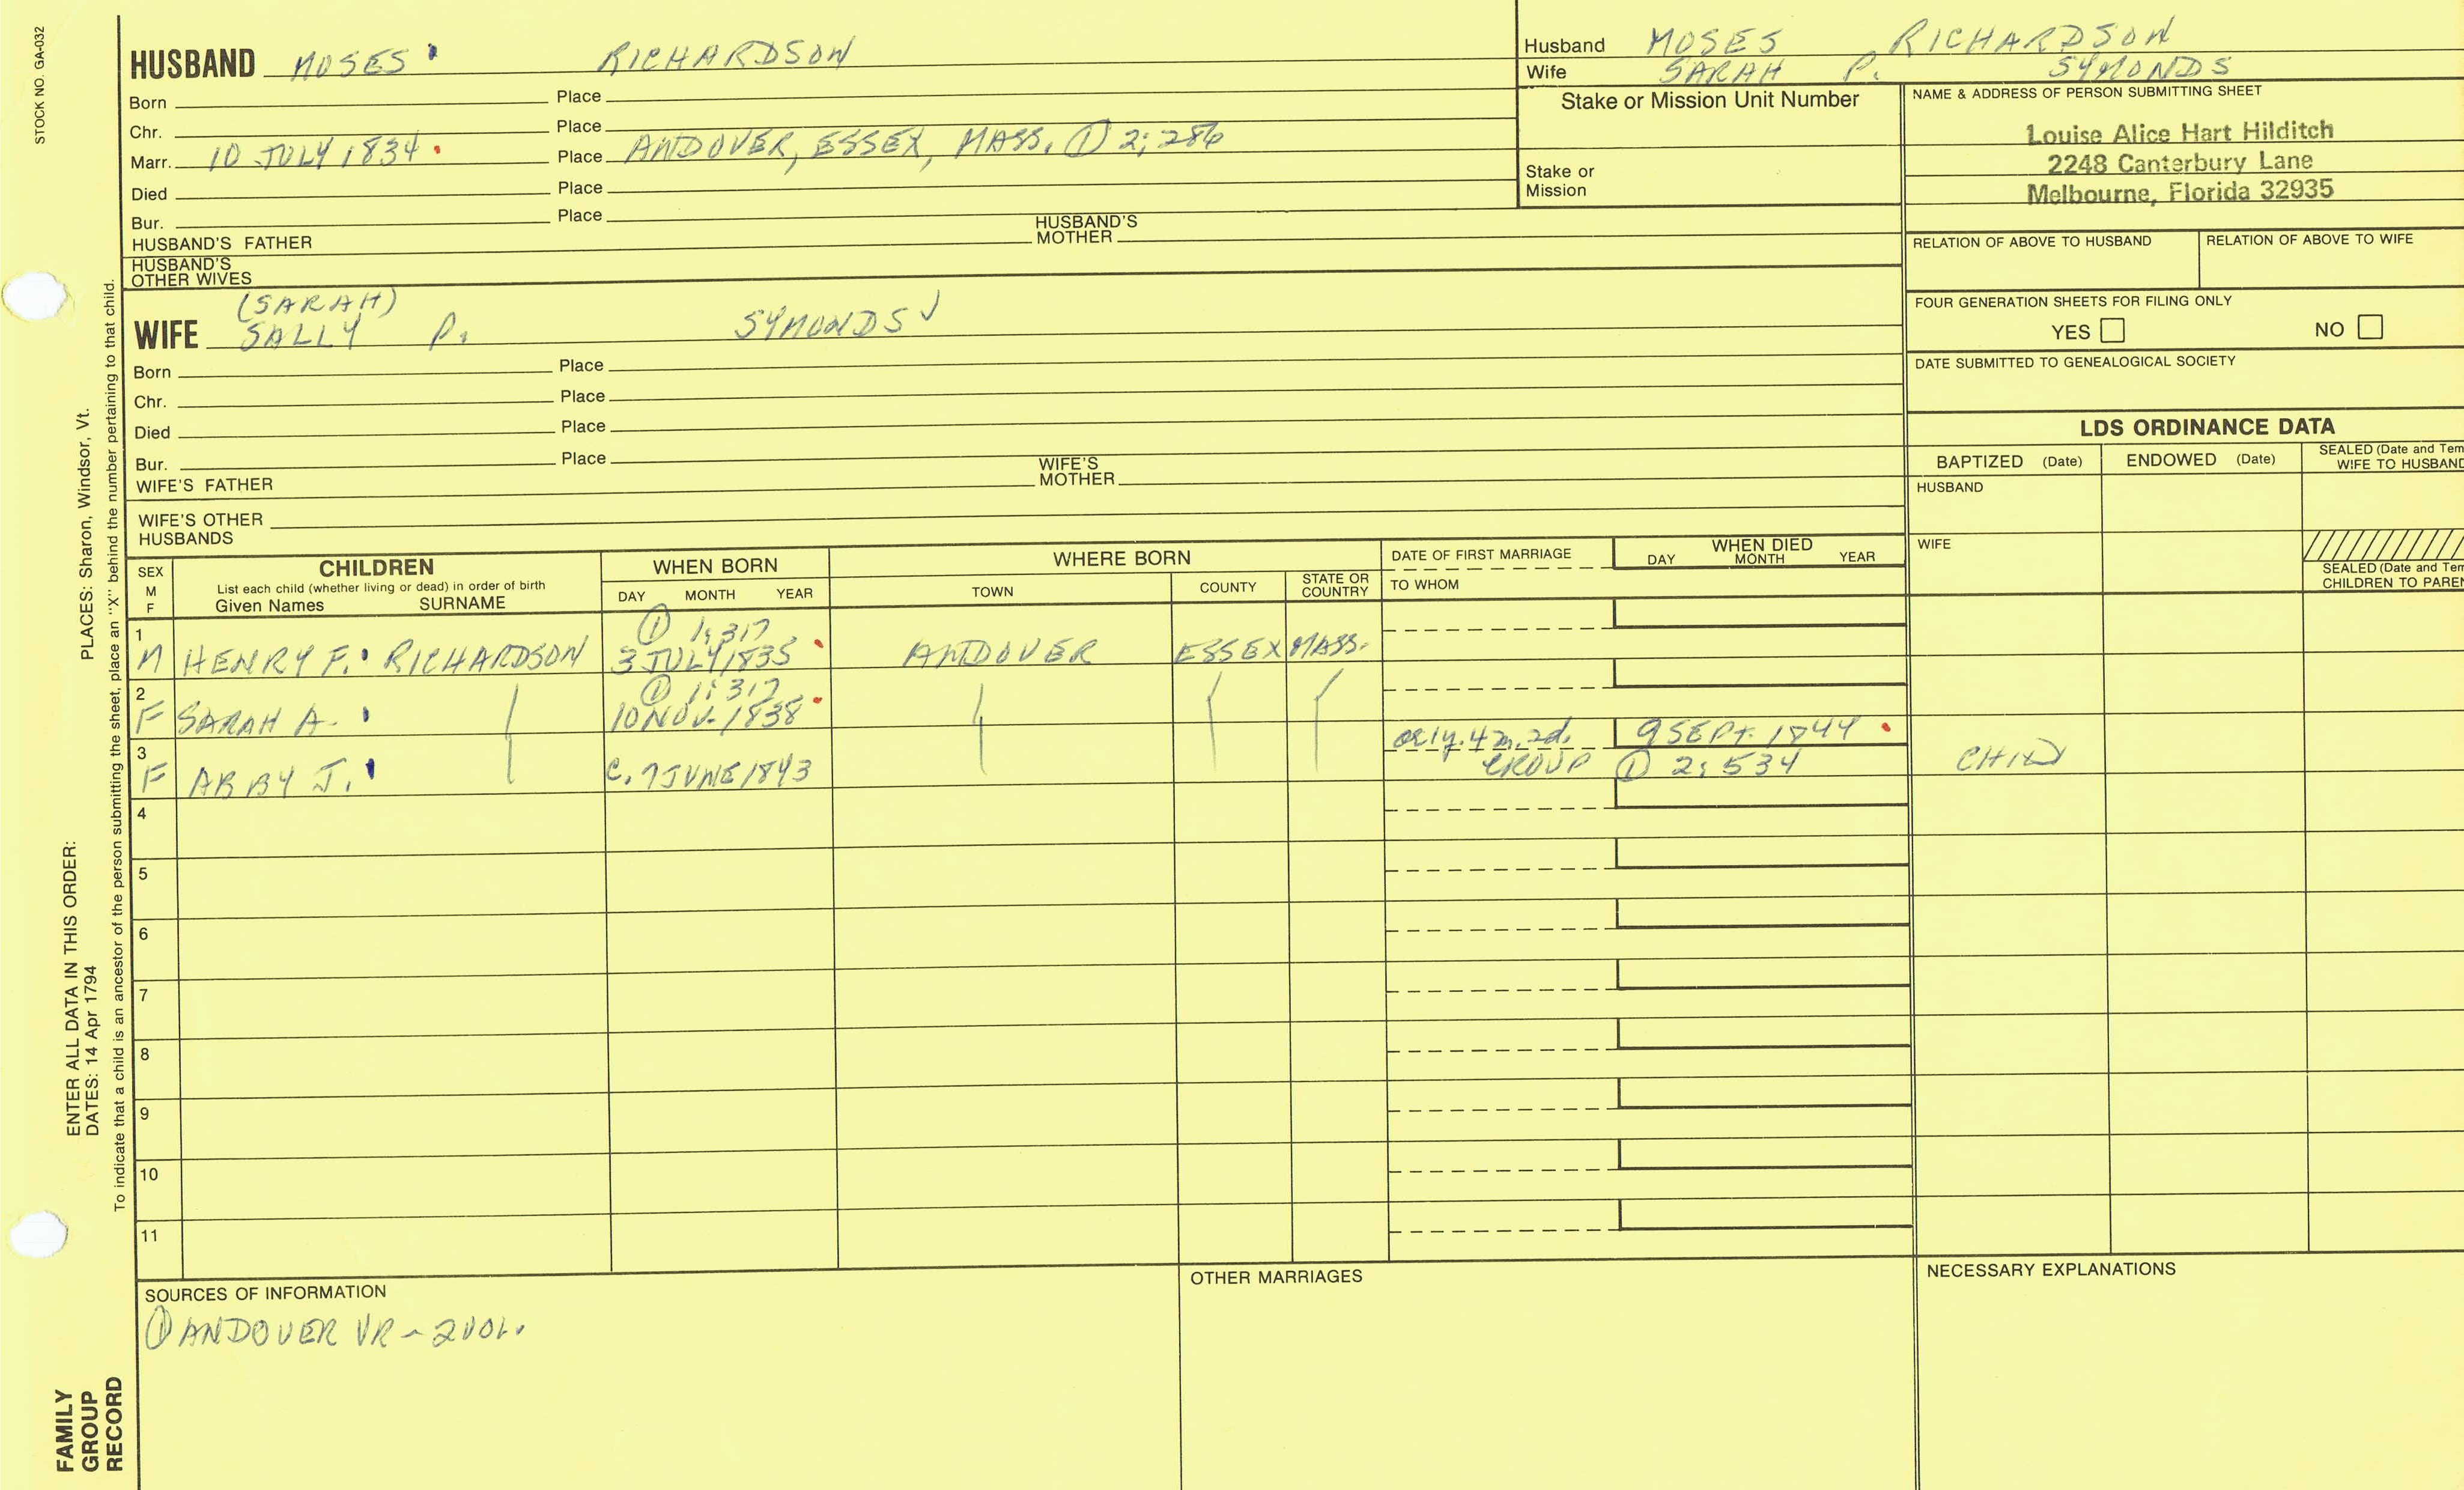 STOCK NO. GA-032
HUSBAND MOSES RICHARDSON
Born Place
Chr. Place
Marr. 10 JULY 1834. Place ANDOVER, ESSEX, MASS. ① 2; 286
Died Place
Bur. Place
HUSBAND'S FATHER HUSBAND'S MOTHER
HUSBAND'S
OTHER WIVES
(SARAH)
WIFE SALLY P. SYMONDS
Born Place
Chr. Place
Died Place
Bur. Place
WIFE'S FATHER WIFE'S MOTHER
WIFE'S OTHER
HUSBANDS
Husband MOSES RICHARDSON
Wife SARAH P. SYMONDS
Stake or Mission Unit Number
Stake or
Mission
NAME & ADDRESS OF PERSON SUBMITTING SHEET
Louise Alice Hart Hilditch
2248 Canterbury Lane
Melbourne, Florida 32935
RELATION OF ABOVE TO HUSBAND RELATION OF ABOVE TO WIFE
FOUR GENERATION SHEETS FOR FILING ONLY
YES NO
DATE SUBMITTED TO GENEALOGICAL SOCIETY
LDS ORDINANCE DATA
BAPTIZED (Date) ENDOWED (Date) SEALED (Date and Tem
WIFE TO HUSBAND
HUSBAND
WIFE
SEALED (Date and Tem
CHILDREN TO PAREN
SEX
M
F
CHILDREN
List each child (whether living or dead) in order of birth
Given Names SURNAME
WHEN BORN
DAY MONTH YEAR
WHERE BORN
TOWN COUNTY STATE OR COUNTRY
DATE OF FIRST MARRIAGE
TO WHOM
WHEN DIED
DAY MONTH YEAR
1 ① 1; 317
M HENRY F. RICHARDSON 3 JULY 1835 ANDOVER ESSEX MASS.
2 ① 1; 317
F SARAH A. 10 NOV. 1838
3 9 SEPT. 1844
F ABBY J. C. 7 JUNE 1843 GROUP ① 2; 534 CHILD
4
5
6
7
8
9
10
11
SOURCES OF INFORMATION
① ANDOVER VR - 2 VOL.
OTHER MARRIAGES
NECESSARY EXPLANATIONS
ENTER ALL DATA IN THIS ORDER:
DATES: 14 Apr 1794 PLACES: Sharon, Windsor, Vt.
To indicate that a child is an ancestor of the person submitting the sheet, place an "X" behind the number pertaining to that child.
FAMILY
GROUP
RECORD